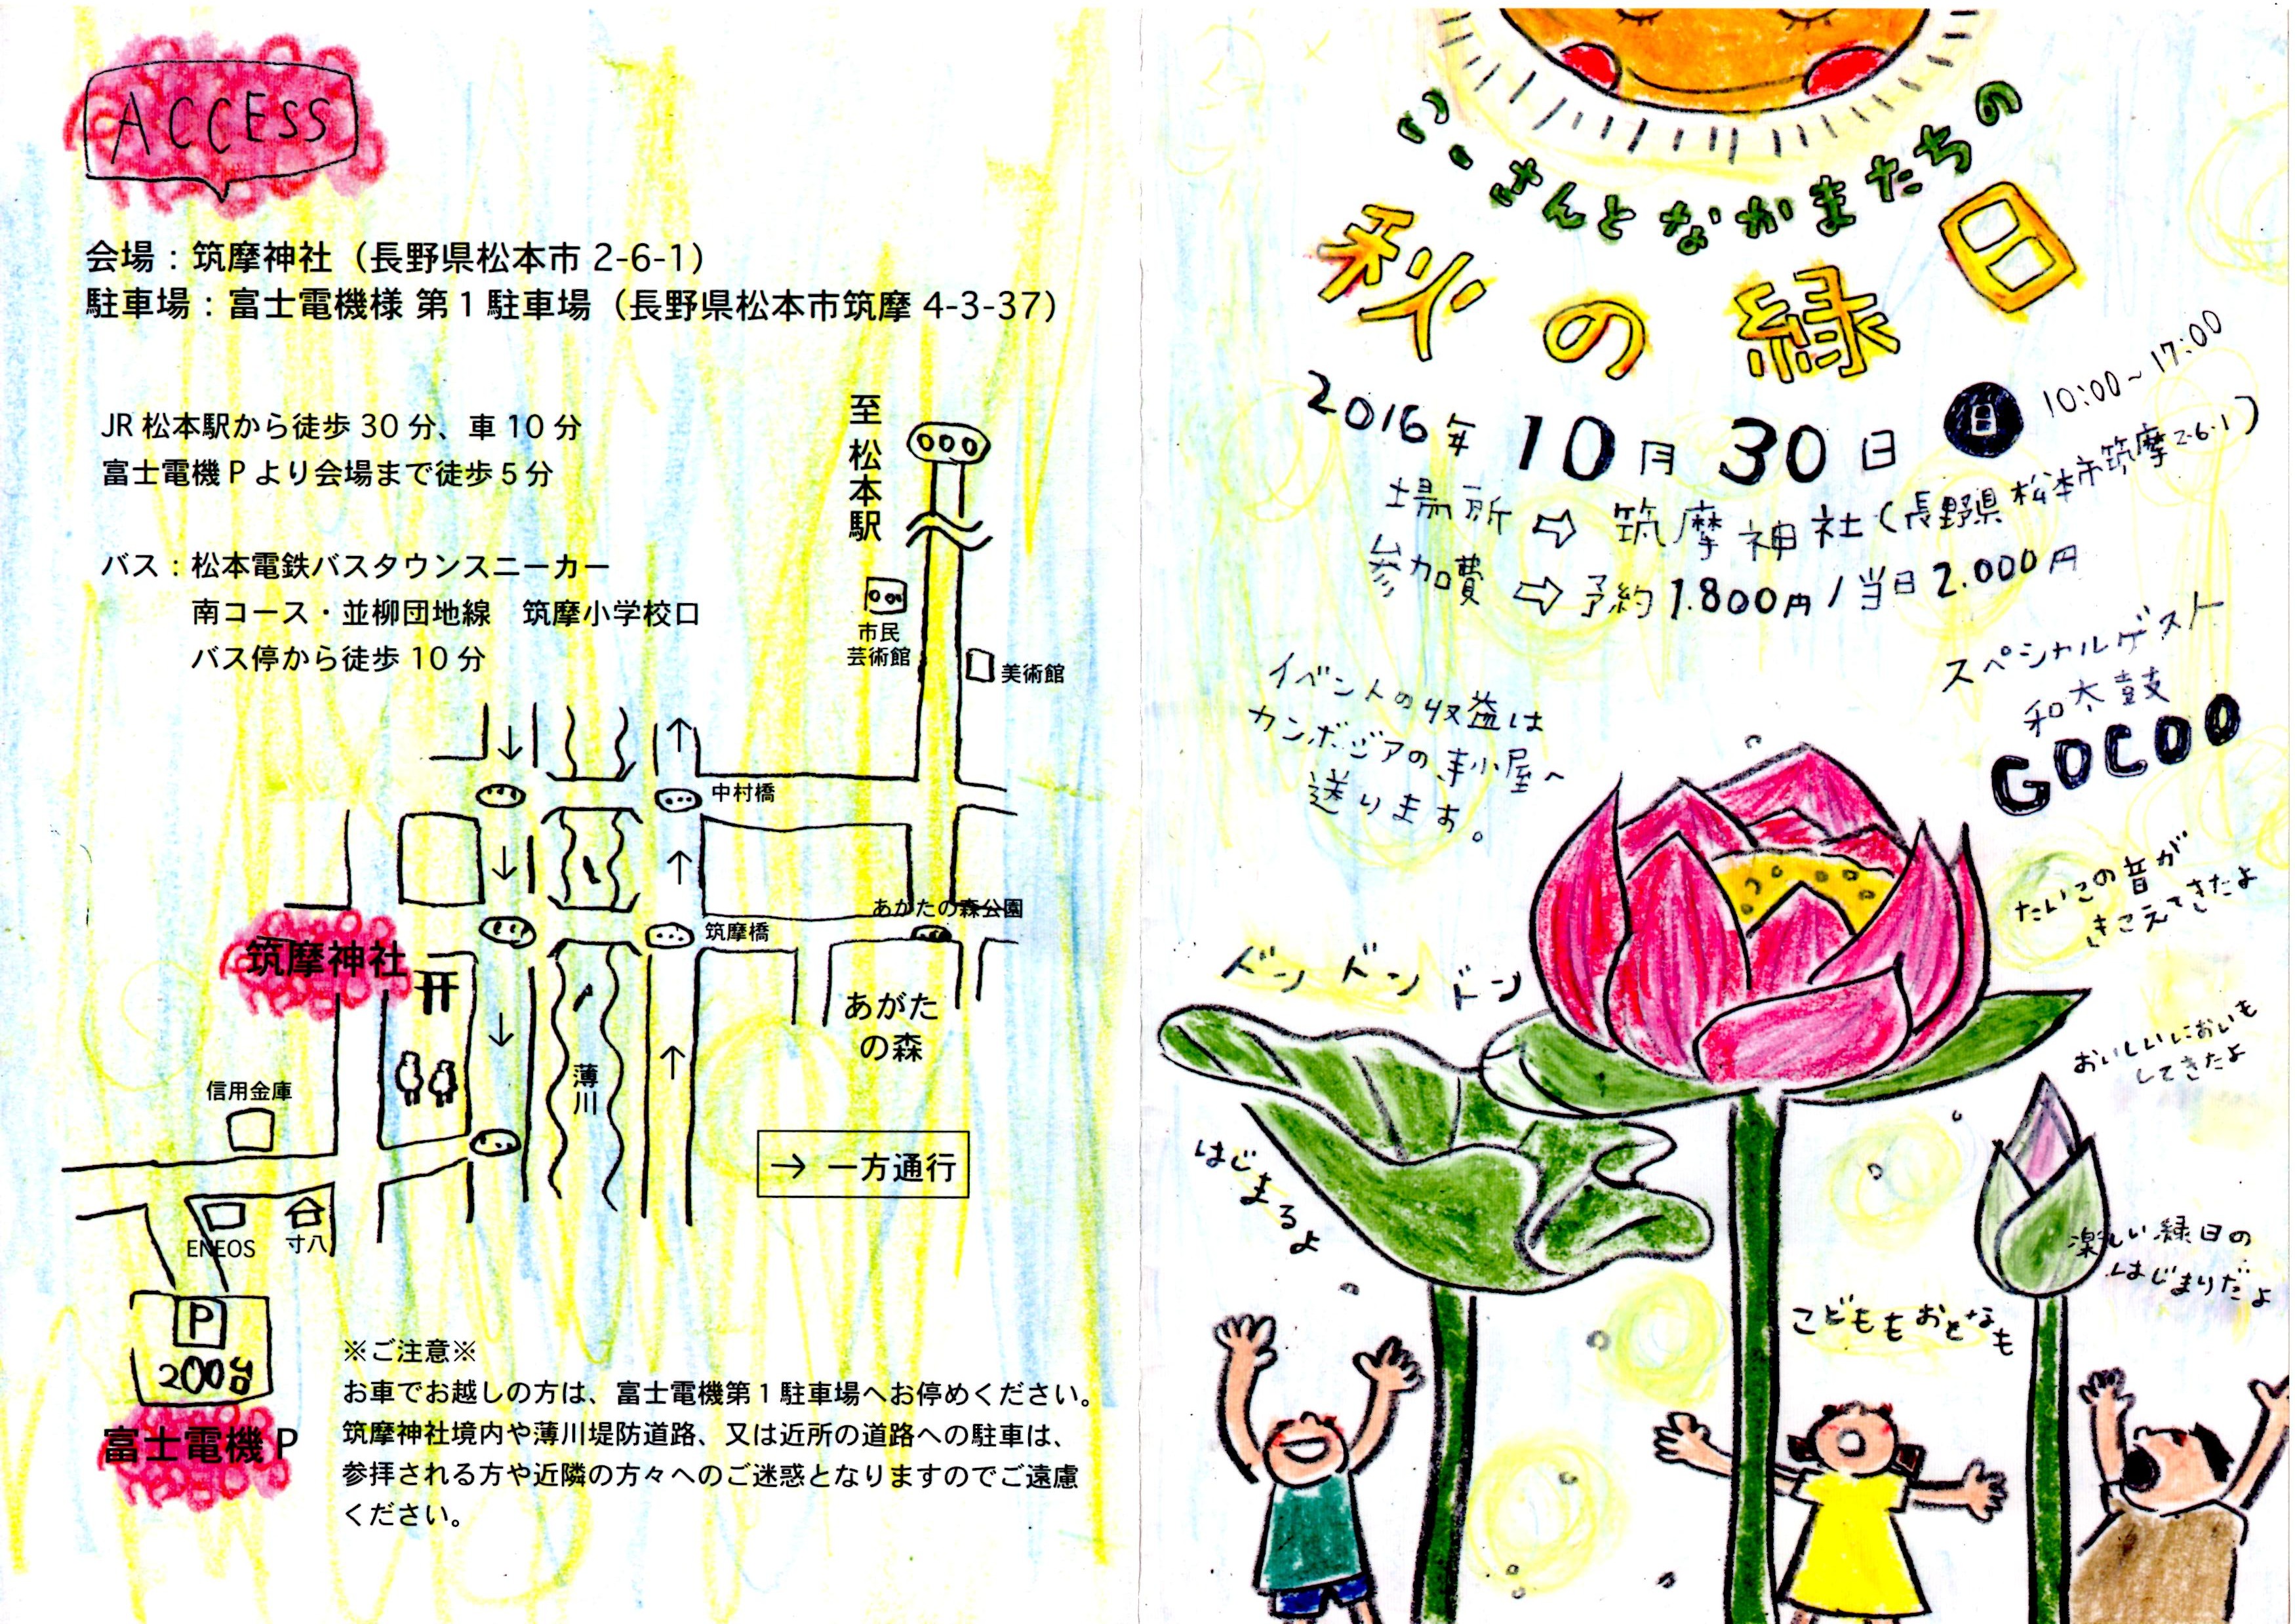 ACCESS
会場：筑摩神社（長野県松本市 2-6-1）
駐車場：富士電機様 第1駐車場（長野県松本市筑摩 4-3-37）
JR 松本駅から徒歩 30 分、車 10 分
富士電機 P より会場まで徒歩 5 分
バス：松本電鉄バスタウンスニーカー
南コース・並柳団地線　筑摩小学校口
バス停から徒歩 10 分
至 松本駅
市民
芸術館
美術館
中村橋
あがたの森公園
筑摩橋
筑摩神社
あがた
の森
薄川
信用金庫
→ 一方通行
ENEOS
寸八
P
200台
富士電機 P
※ご注意※
お車でお越しの方は、富士電機第1駐車場へお停めください。
筑摩神社境内や薄川堤防道路、又は近所の道路への駐車は、
参拝される方や近隣の方々へのご迷惑となりますのでご遠慮
ください。
いーさんとなかまたちの
秋の縁日
2016年 10月 30日 日 10:00~17:00
場所⇨筑摩神社(長野県松本市筑摩2-6-1)
参加費⇨予約1.800円/当日2.000円
スペシャルゲスト
和太鼓
GOCOO
イベントの収益は
カンボジアの寺小屋へ
送ります。
たいこの音が
きこえてきたよ
ドン ドン ドン
おいしいにおいも
してきたよ
はじまるよ
楽しい縁日の
はじまりだよ
こどももおとなも